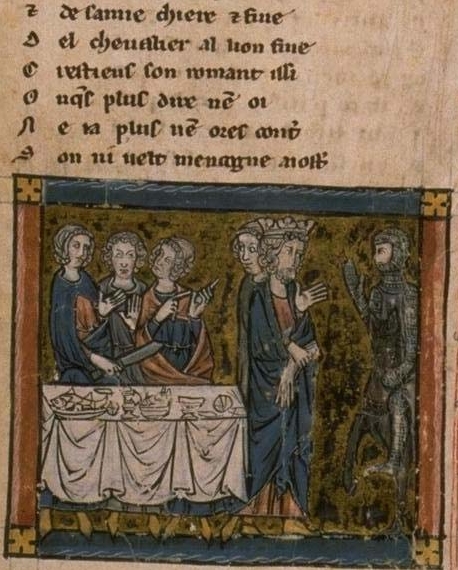 ⁊ de samie chiere ⁊ fine
D el cheualier al lion fine
C restiens son romant issi
O nq̄s plus dire nē oi
N e ia plus nē ores cont̄
S on ni uelt mencogne aiost̄